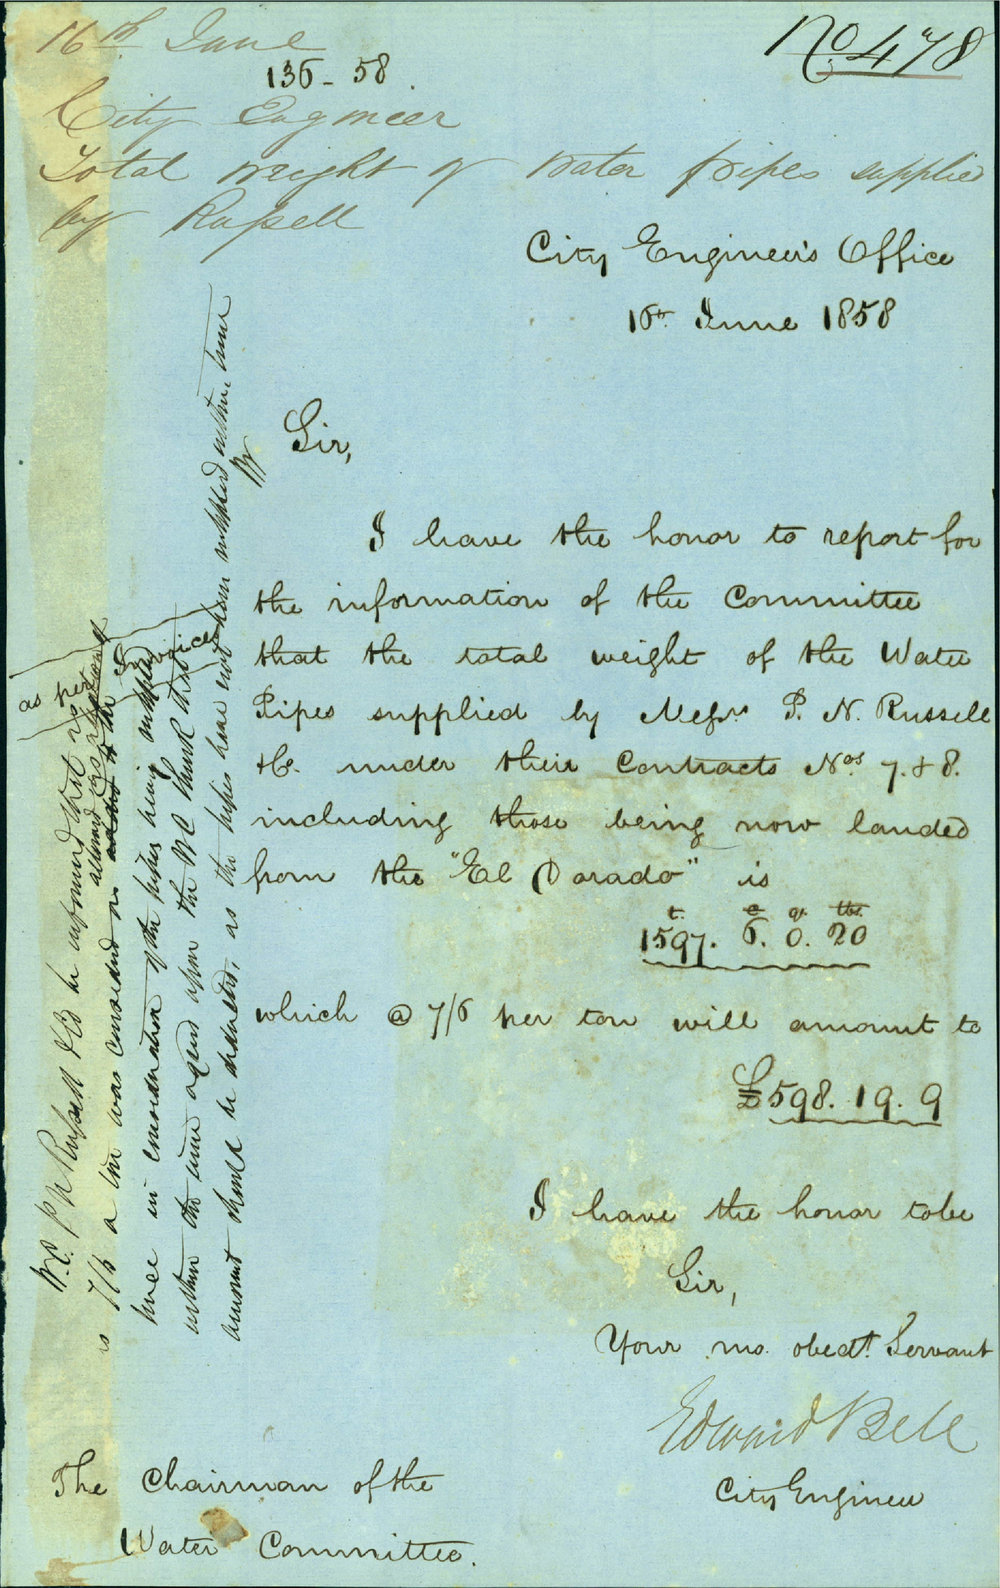 16th June
136-58
No 478
City Engineer
Total weight of water pipes supplied
by Russell
City Engineer's Office
16th June 1858
Sir,
I have the honor to report for
the information of the Committee
that the total weight of the Water
Pipes supplied by Messrs P. N. Russell
& Co. under their Contracts Nos 7. & 8.
including those being now landed
from the "El Dorado" is
t. c q. lbs.
1597. 6. 0. 20
which @ 7/6 per ton will amount to
£598. 19. 9
I have the honor to be
Sir,
Your mo. obedt. Servant
Edward Bell
City Engineer
The Chairman of the
Water Committee.
W.C. P N Russell & Co be informed that as
as per Invoice
7/6 a ton was considered as
allowed as
added to the
price in consideration of the pipes being supplied
within the time agreed upon the WC think that this
amount should be deducted, as the pipes have not been supplied within time